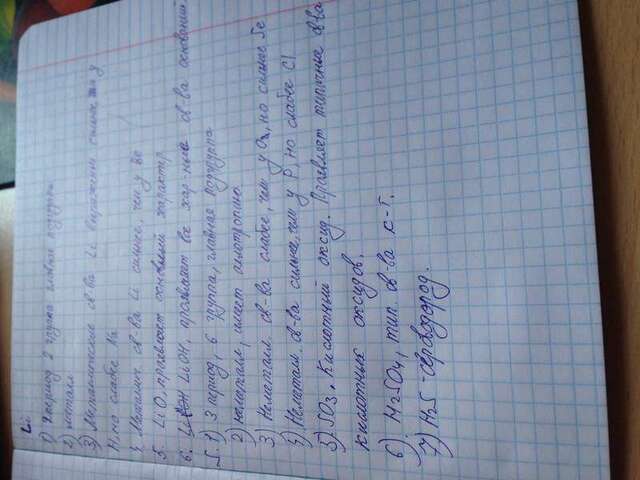 Li.
1) 2 период 2 группа главная подгруппа
2) металл
3) Металлические св-ва Li выражены сильнее чем у
H, но слабее Na
4. Металлич. св-ва Li сильнее, чем у Be
5. LiO, проявляет основный характер
6. LiOH, проявляет все хар-ные св-ва оснований
S. 1) 3 период, 6 группа, главная подгруппа
2) неметалл, имеет аллотропию
3) Неметалл. св-ва слабее, чем у O₂, но сильнее Se
4) Неметал. св-ва сильнее, чем у P, но слабее Cl
5) SO₃, Кислотный оксид. Проявляет типичные св-ва
кислотных оксидов.
6) H₂SO₄, тип. св-ва к-т.
7) H₂S - сероводород.